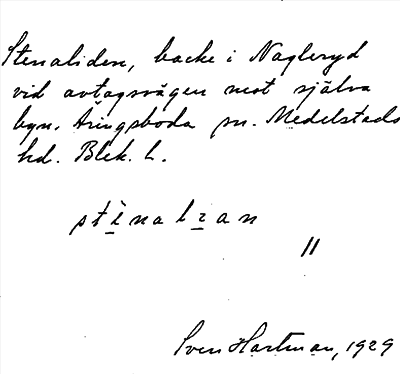 Stenaliden, backe i Nagleryd
vid avtagsvägen mot själva
byn. Åryngsboda sn. Medelstads
hd. Blek. L.
stènalɪan
||
Sven Hartman, 1929